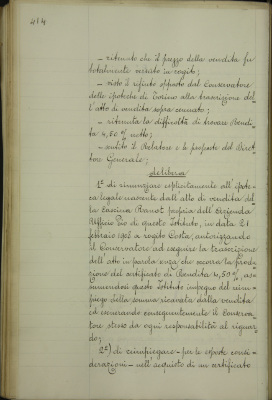 414
— ritenuto che il prezzo della vendita fu
totalmente versato in rogito;
— visto il rifiuto opposto dal Conservatore
delle ipoteche di Torino alla trascrizione del
l'atto di vendita sopra cennato;
— ritenuta la difficoltà di trovare Rendi
ta 4,50 % netto;
— sentito il Relatore e le proposte del Diret
tore Generale;
delibera
1° di rinunziare esplicitamente all'ipote
ca legale nascente dall'atto di vendita del
la Cascina propria dell'Azienda
Ufficio Pio di questo Istituto, in data 21
febbraio 1906 a rogito Costa, autorizzando
il Conservatore ad eseguire la trascrizione
dell'atto in parola senza che occorra la produ
zione del certificato di Rendita 4,50 %, as
sumendosi questo Istituto impegno del reim
piego della somma ricavata dalla vendita
ed esonerando conseguentemente il Conserva
tore stesso da ogni responsabilità al riguar
do;
2°) di reimpiegare — per le esposte consi
derazioni — nell'acquisto di un certificato